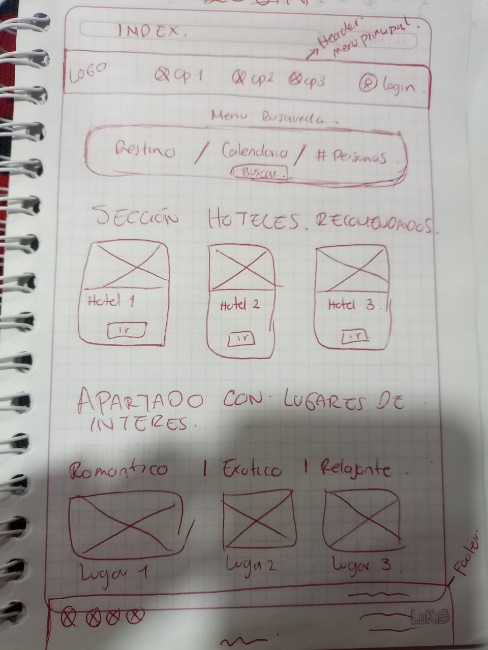 INDEX.
Header
menu principal.
LOGO
Op 1
Op2
Op3
Login
Menu Busqueda.
Destino / Calendario / # Personas.
Buscar.
SECCIÓN HOTELES. RECOMENDADOS.
Hotel 1
Hotel 2
Hotel 3.
ir
ir
ir
APARTADO CON LUGARES DE
INTERES.
Romantico | Exotico | Relajante.
Lugar 1
Lugar 2
Lugar 3.
Footer